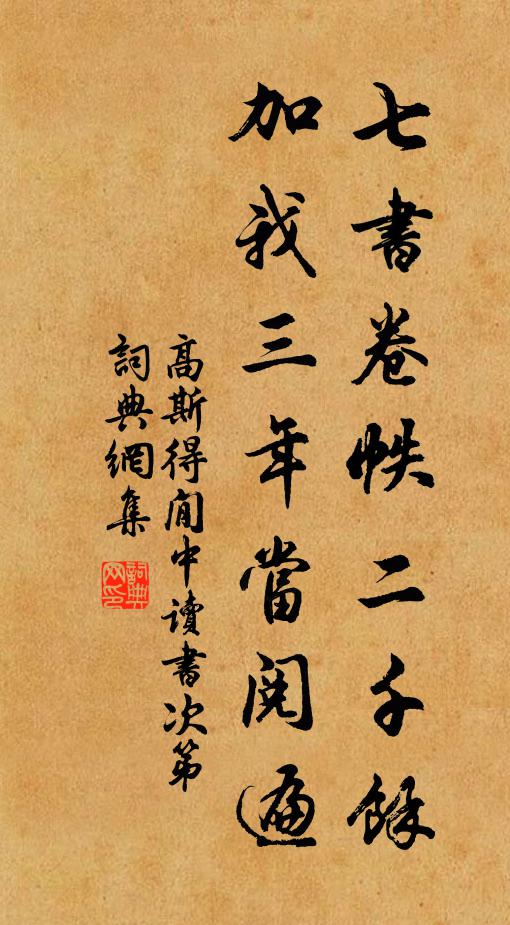 七書卷帙二千餘
加我三年當閱遍
高斯得閒中讀書次第
詞典網集
詞典網印